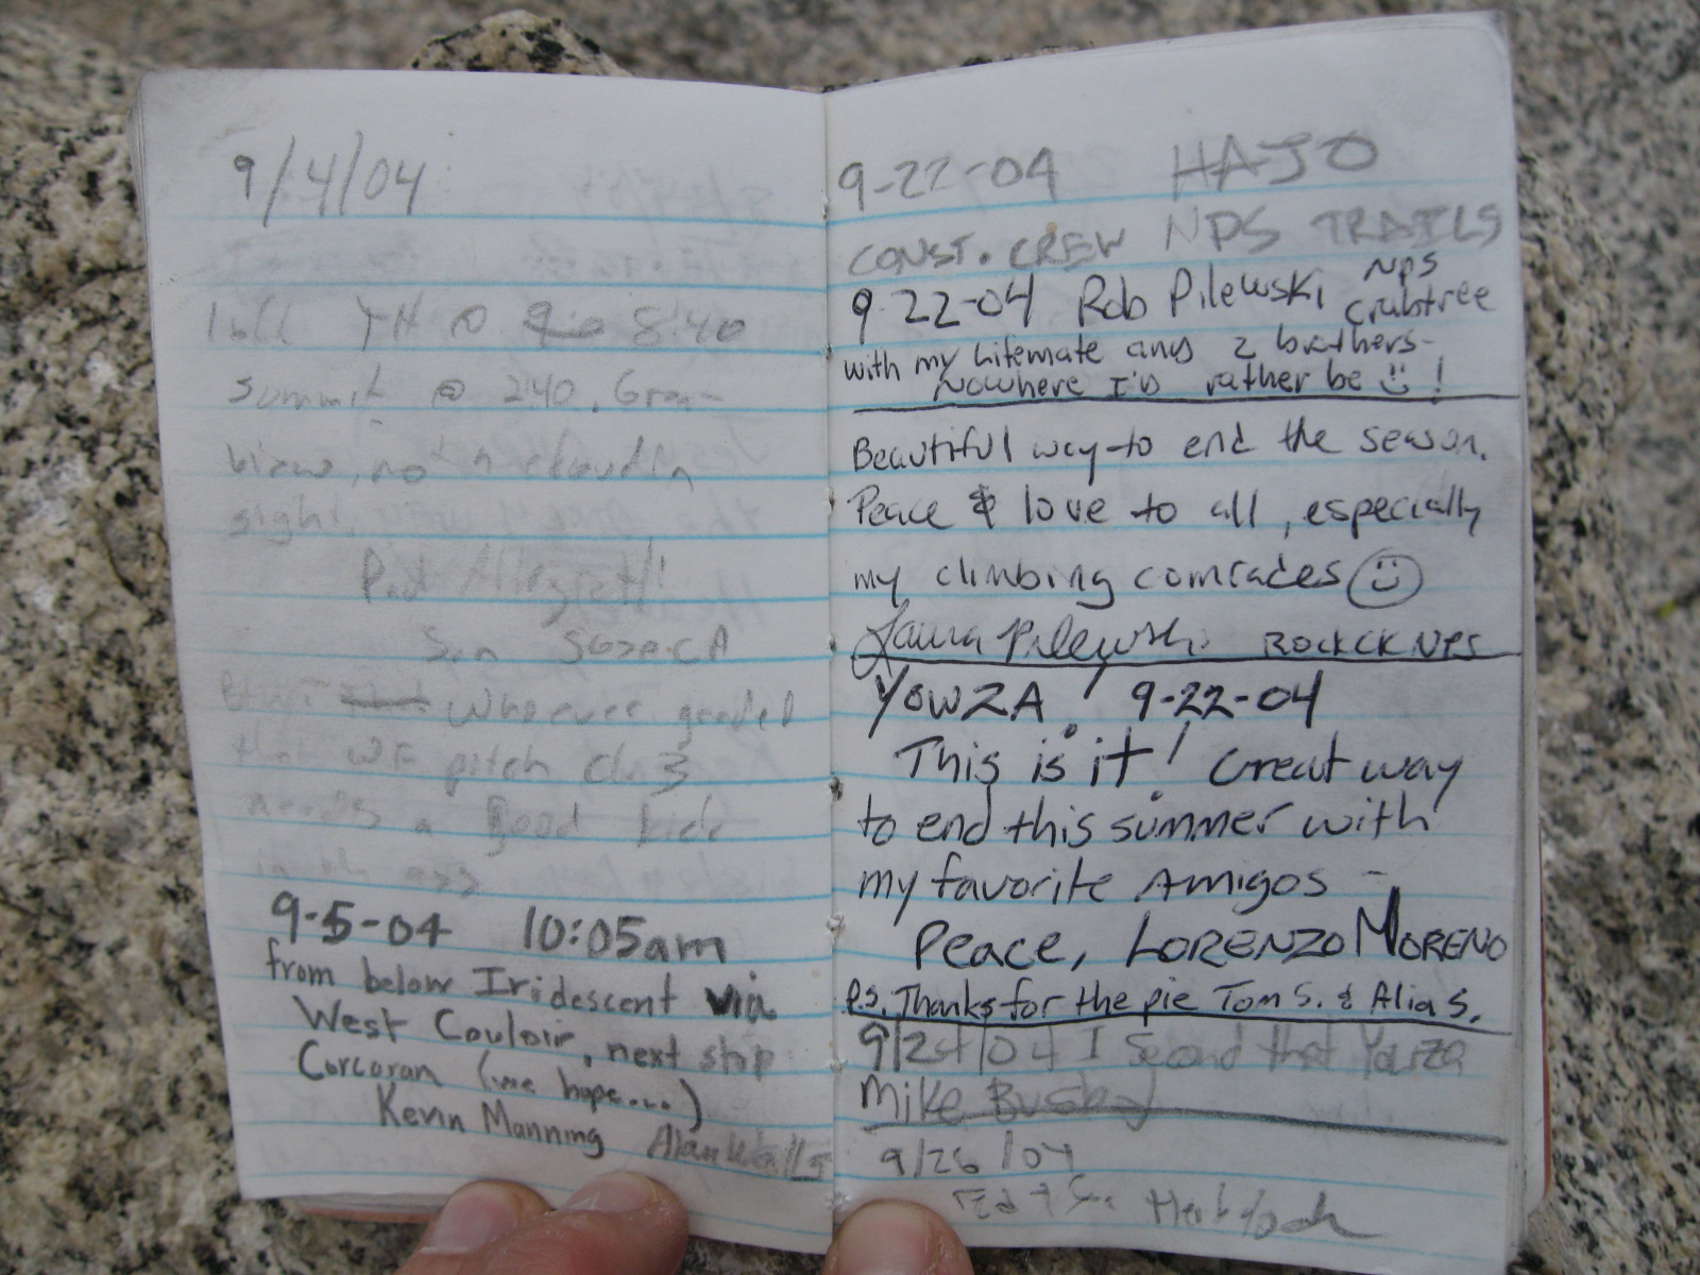 9/4/04
TH @ 8:40
summit @ 2:40. Great
view, not a cloud in
sight,
San Jose CA
whoever graded
that pitch class 3
needs a good kick
in the ass
9-5-04 10:05am
from below Iridescent via
West Couloir, next stop
Corcoran (we hope...)
Kevin Manning Alan Walls
9-22-04 HAJO
CONST. CREW NPS TRAILS
9-22-04 Rob Pilewski NPS
Crabtree
with my lifemate and 2 brothers-
Nowhere I'd rather be !
Beautiful way to end the season.
Peace & love to all, especially
my climbing comrades
Laura Pilewski ROCK CK NPS
YOWZA! 9-22-04
This is it! Great way
to end this summer with
my favorite Amigos -
Peace, LORENZO MORENO
P.S. Thanks for the pie Tom S. & Alia S.
9/24/04 I Second that Yowza
Mike
9/26/04
Ed +